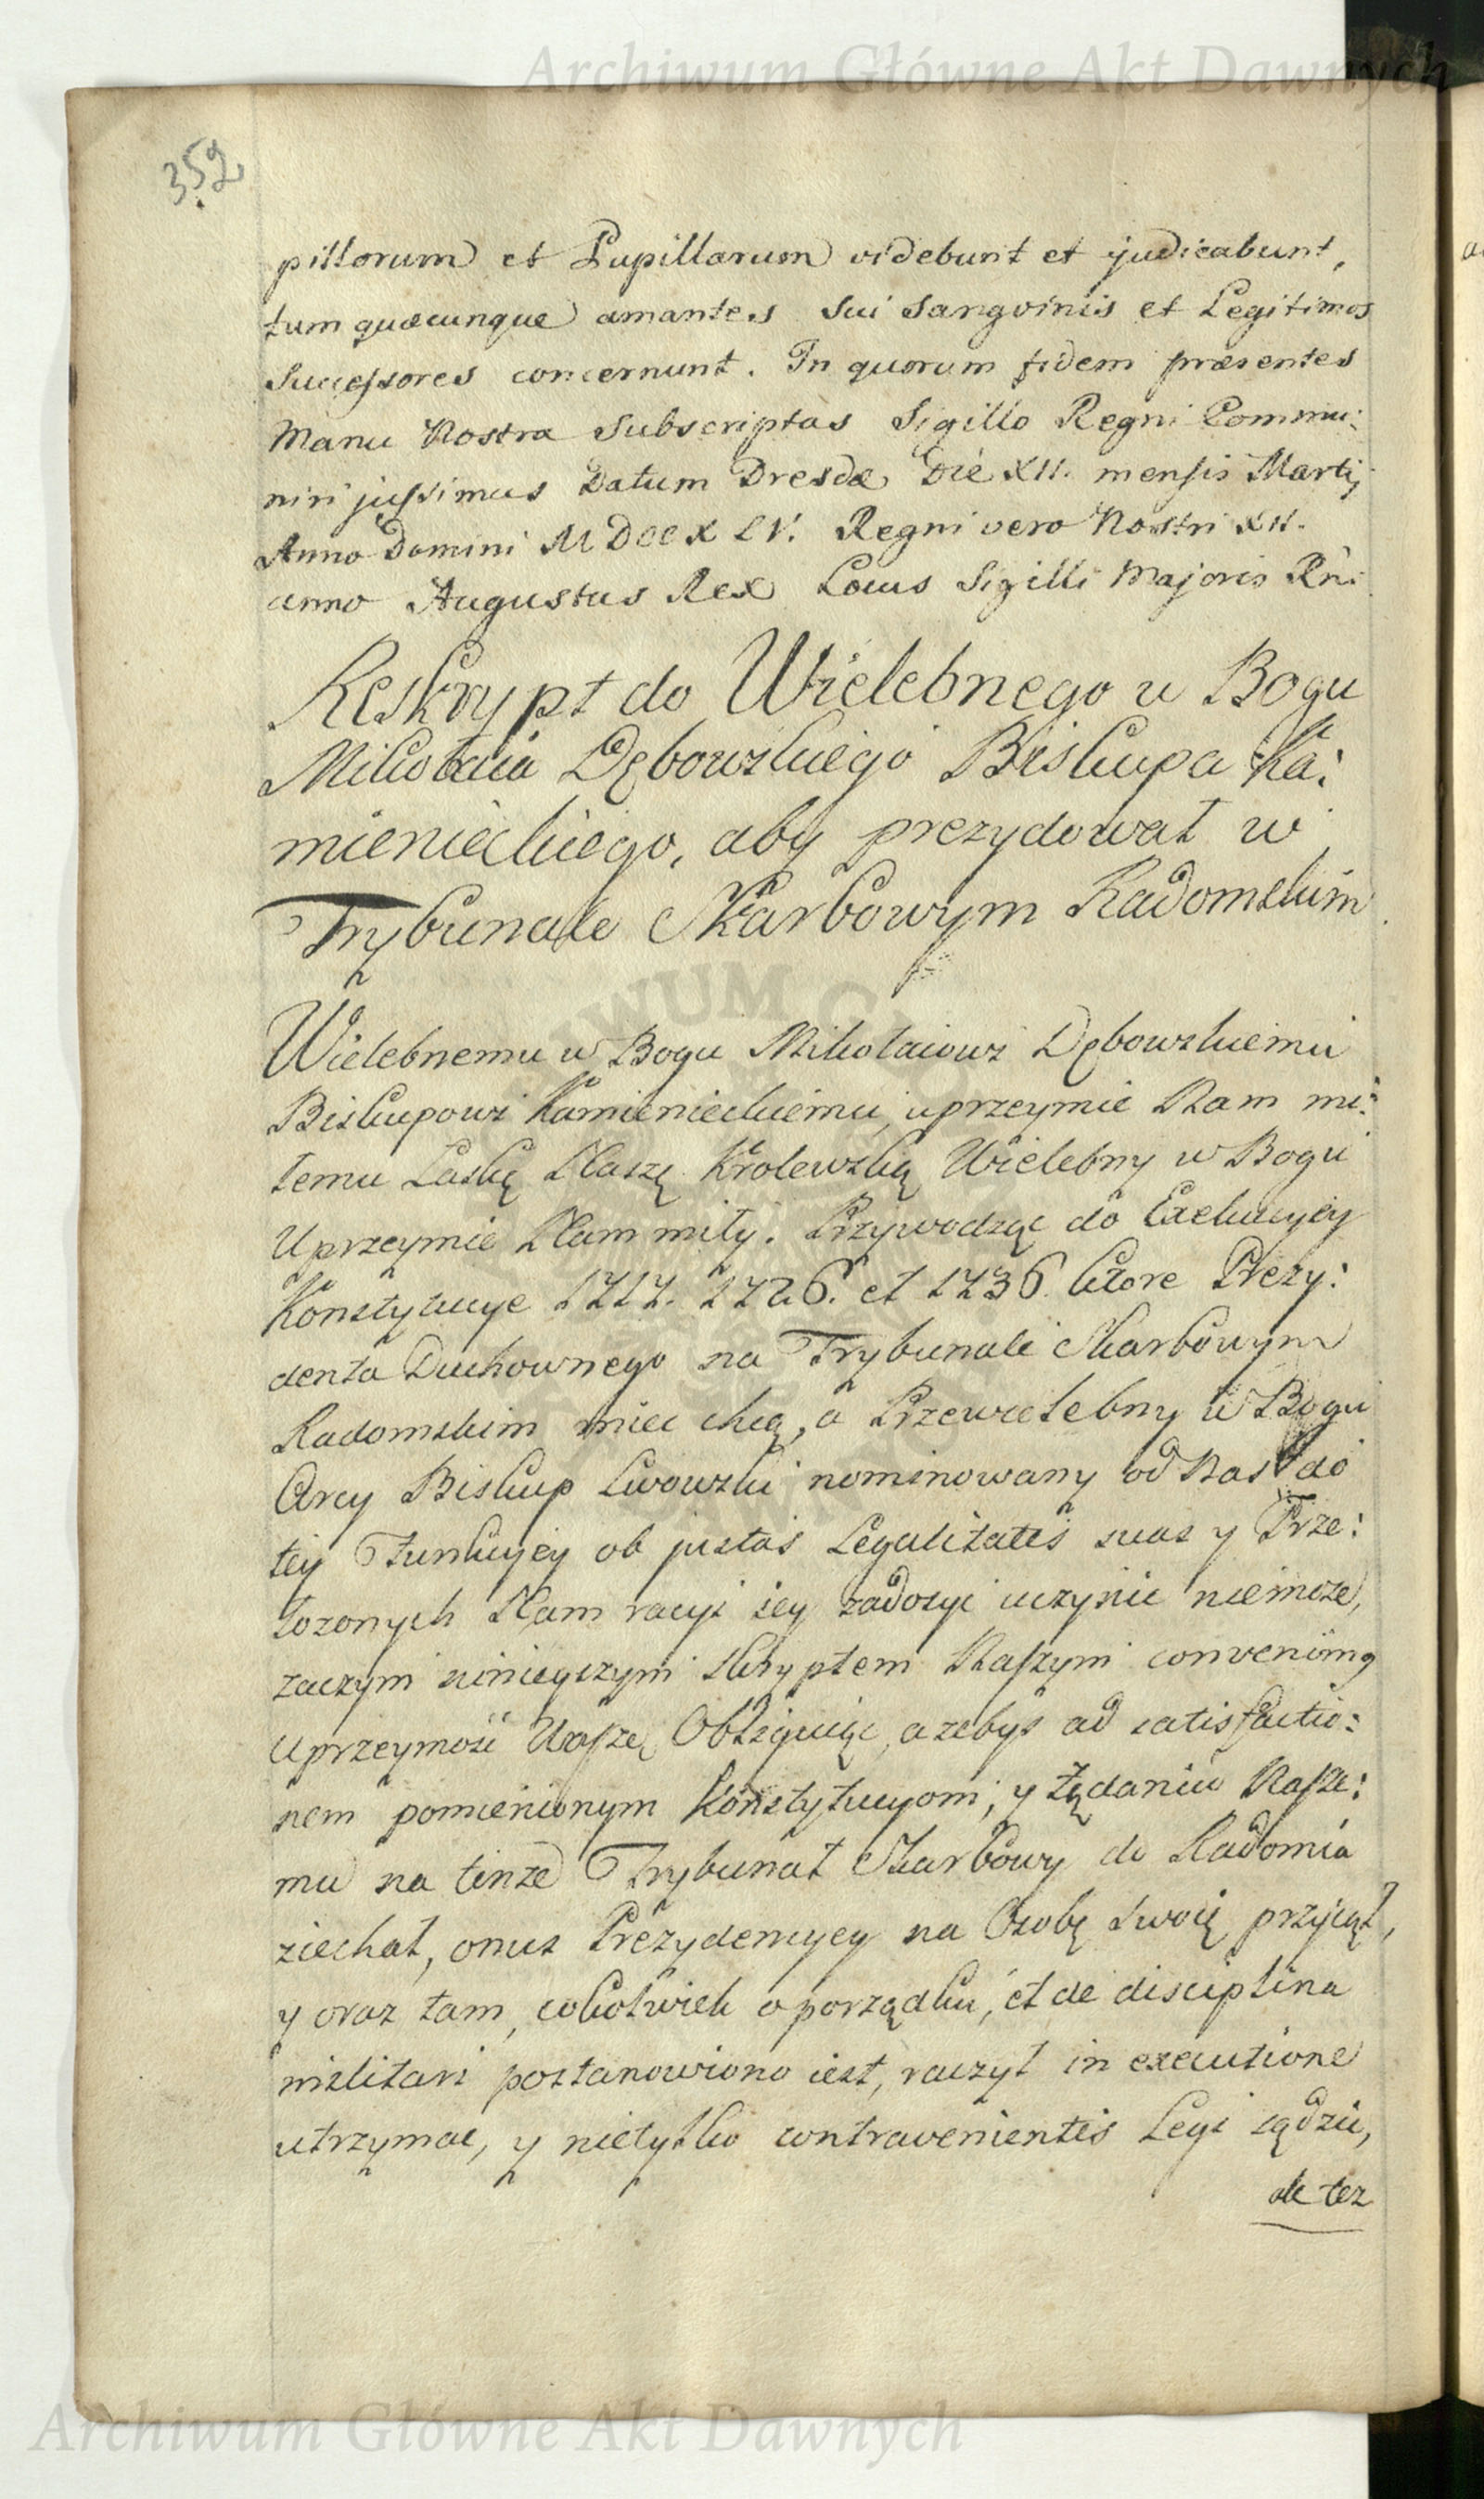 Archiwum Główne Akt Dawnych
352
pillorum et Pupillarum videbunt et judicabunt,
tum quæcunque amantes sui Sangvinis et Legitimos
Successores concernunt. In quorum fidem præsentes
Manu Nostra Subscriptas Sigillo Regni Commu:
niri jussimus Datum Dresdæ Die XII. mensis Martij
Anno Domini MDCCXLV. Regni vero Nostri XII.
anno Augustus Rex Locus Sigilli Majoris Rni
Reskrypt do Wielebnego w Bogu
Mikołaia Dębowskiego Biskupa Ka:
mienieckiego, aby prezydował w
Trybunale Skarbowym Radomskim
Wielebnemu w Bogu Mikołaiowi Dębowskiemu
Biskupowi Kamienieckiemu, uprzeymie Nam mi:
łemu Łaskę Naszę Krolewską Wielebny w Bogu
Uprzeymie Nam miły. Przywodząc do Exekucyey
Konstytucye 1717. 1726. et 1736. ktore Prezy:
denta Duchownego na Trybunale Skarbowym
Radomskim miec chcą, a Przewielebny w Bogu
Arcy Biskup Lwowski nominowany od Nas do
tey Funkcyey ob justas Legalitates suas y Prze:
łozonych Nam racyi iey zadosyc uczynic niemoze,
zaczym ninieyszym skryptem Naszym convenimą
Uprzeymość Waszę Obliguiąc, azebys ad satisfactio:
nem pomienionym Konstytucyom, y Ządaniu Nasze:
mu na tenze Trybunał Skarbowy do Radomia
ziechał, onus Prezydencyey na Osobę swoię przyiął,
y oraz tam, cokolwiek o porządku, et de disciplina
militari postanowiono iest, raczył in executione
utrzymac, y nietylko contravenientes Legi sądzic,
ale tez
Archiwum Główne Akt Dawnych